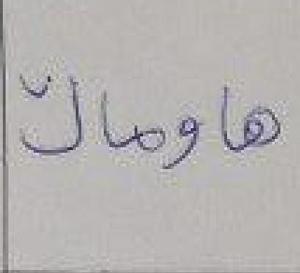 هاوماڵ